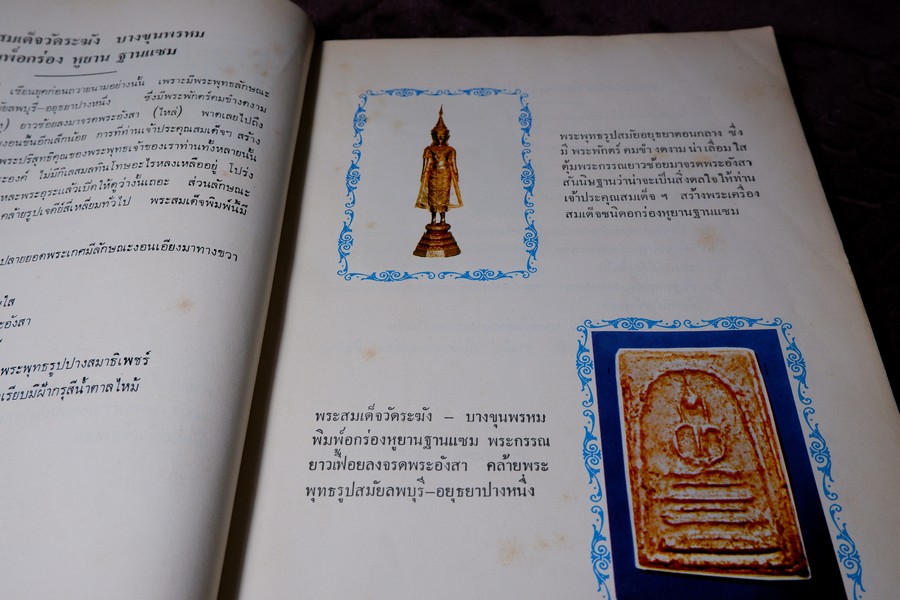 สมเด็จวัดระฆัง บางขุนพรหม
อกร่อง หูยาน ฐานแซม
เขียนยุคก่อนถวายนามอย่างนั้น เพราะมีพระพุทธลักษณะ
ลพบุรี–อยุธยาปางหนึ่ง ซึ่งมีพระพักตร์คมข้างดงาม
ยาวช้อยลงมาจรดพระอังสา (ไหล่) พาดเลยไปถึง
งอนขึ้นอีกเล็กน้อย การที่ท่านเจ้าประคุณสมเด็จฯ สร้าง
พระบริสุทธิคุณของพระพุทธเจ้าของเราท่านทั้งหลายนั้น
ะองค์ ไม่มีกิเลสมลทินโทษอะไรหลงเหลืออยู่ โปร่ง
หละพระอุระแล้วเบิดให้ดูว่างั้นเถอะ ส่วนลักษณะ
คล้ายรูปเจดีย์สี่เหลี่ยมทั่วไป พระสมเด็จพิมพ์นี้มี
ปลายยอดพระเกศมีลักษณะงอนเอียงมาทางขวา
ใส
ะอังสา
พระพุทธรูปปางสมาธิเพชร์
เรียบมีฝ้ากรุสีน้ำตาลไหม้
พระพุทธรูปสมัยอยุธยาตอนกลาง ซึ่ง
มี พระพักตร์ คมขำ งดงาม น่า เลื่อม ใส
ตุ้มพระกรรณยาวช้อยมาจรดพระอังสา
สันนิษฐานว่าน่าจะเป็นสิ่งดลใจให้ท่าน
เจ้าประคุณสมเด็จ ฯ สร้างพระเครื่อง
สมเด็จชนิดอกร่องหูยานฐานแซม
พระสมเด็จวัดระฆัง – บางขุนพรหม
พิมพ์อกร่องหูยานฐานแซม พระกรรณ
ยาวเฟื้อยลงจรดพระอังสา คล้ายพระ
พุทธรูปสมัยลพบุรี–อยุธยาปางหนึ่ง